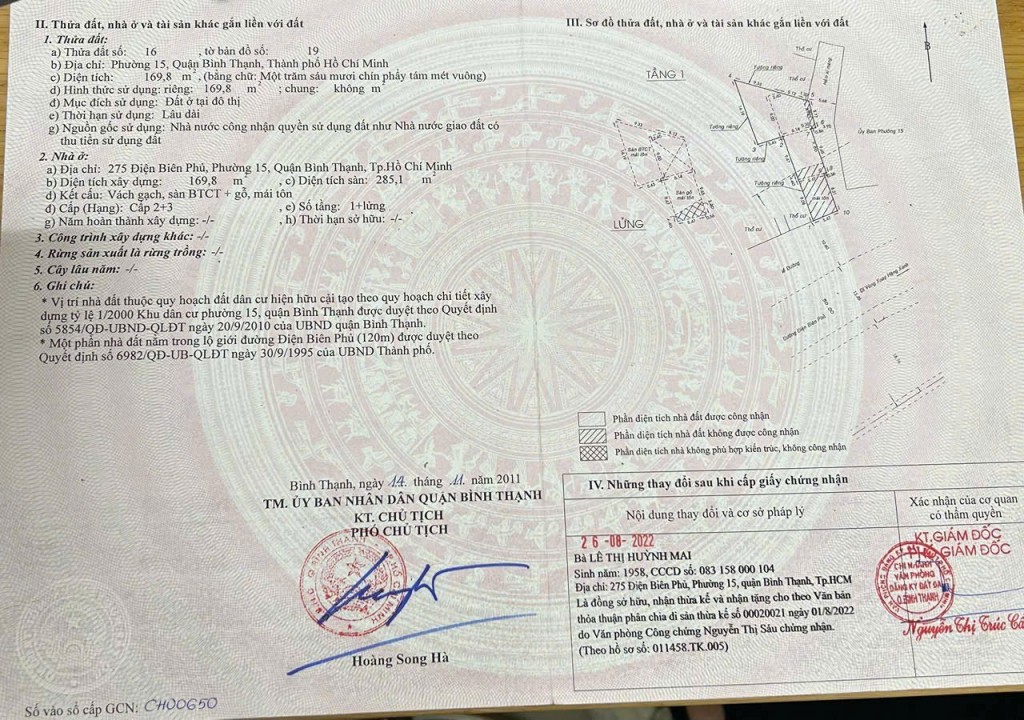 II. Thửa đất, nhà ở và tài sản khác gắn liền với đất
1. Thửa đất:
a) Thửa đất số: 16 , tờ bản đồ số: 19
b) Địa chỉ: Phường 15, Quận Bình Thạnh, Thành phố Hồ Chí Minh
c) Diện tích: 169,8 m², (bằng chữ: Một trăm sáu mươi chín phẩy tám mét vuông)
d) Hình thức sử dụng: riêng: 169,8 m² ; chung: không m²
đ) Mục đích sử dụng: Đất ở tại đô thị
e) Thời hạn sử dụng: Lâu dài
g) Nguồn gốc sử dụng: Nhà nước công nhận quyền sử dụng đất như Nhà nước giao đất có
thu tiền sử dụng đất
2. Nhà ở:
a) Địa chỉ: 275 Điện Biên Phủ, Phường 15, Quận Bình Thạnh, Tp.Hồ Chí Minh
b) Diện tích xây dựng: 169,8 m² , c) Diện tích sàn: 285,1 m²
d) Kết cấu: Vách gạch, sàn BTCT + gỗ, mái tôn
đ) Cấp (Hạng): Cấp 2+3 , e) Số tầng: 1+lửng
g) Năm hoàn thành xây dựng: -/- , h) Thời hạn sở hữu: -/-
3. Công trình xây dựng khác: -/-
4. Rừng sản xuất là rừng trồng: -/-
5. Cây lâu năm: -/-
6. Ghi chú:
* Vị trí nhà đất thuộc quy hoạch đất dân cư hiện hữu cải tạo theo quy hoạch chi tiết xây
dựng tỷ lệ 1/2000 Khu dân cư phường 15, quận Bình Thạnh được duyệt theo Quyết định
số 5854/QĐ-UBND-QLĐT ngày 20/9/2010 của UBND quận Bình Thạnh.
* Một phần nhà đất nằm trong lộ giới đường Điện Biên Phủ (120m) được duyệt theo
Quyết định số 6982/QĐ-UB-QLĐT ngày 30/9/1995 của UBND Thành phố.
Bình Thạnh, ngày 14 tháng 11 năm 2011
TM. ỦY BAN NHÂN DÂN QUẬN BÌNH THẠNH
KT. CHỦ TỊCH
PHÓ CHỦ TỊCH
Hoàng Song Hà
Số vào sổ cấp GCN: CH00650
III. Sơ đồ thửa đất, nhà ở và tài sản khác gắn liền với đất
B
TẦNG 1
Thổ cư
Tường riêng
Thổ cư
Tường riêng
Ủy Ban Phường 15
Tường riêng
Sàn BTCT
mái tôn
Tường riêng
Sàn gỗ
mái tôn
mái tôn
LỬNG
Thổ cư
Thổ cư
Đi Vòng Xoay Hàng Xanh
Đường Điện Biên Phủ
Phần diện tích nhà đất được công nhận
Phần diện tích nhà đất không được công nhận
Phần diện tích nhà không phù hợp kiến trúc, không công nhận
IV. Những thay đổi sau khi cấp giấy chứng nhận
Nội dung thay đổi và cơ sở pháp lý
Xác nhận của cơ quan
có thẩm quyền
26-08-2022
Bà LÊ THỊ HUỲNH MAI
Sinh năm: 1958, CCCD số: 083 158 000 104
Địa chỉ: 275 Điện Biên Phủ, Phường 15, quận Bình Thạnh, Tp.HCM
Là đồng sở hữu, nhận thừa kế và nhận tặng cho theo Văn bản
thỏa thuận phân chia di sản thừa kế số 00020021 ngày 01/8/2022
do Văn phòng Công chứng Nguyễn Thị Sáu chứng nhận.
(Theo hồ sơ số: 011458.TK.005)
KT.GIÁM ĐỐC
GIÁM ĐỐC
CHI NHÁNH
VĂN PHÒNG
ĐĂNG KÝ ĐẤT ĐAI
Q.BÌNH THẠNH
Nguyễn Thị Trúc